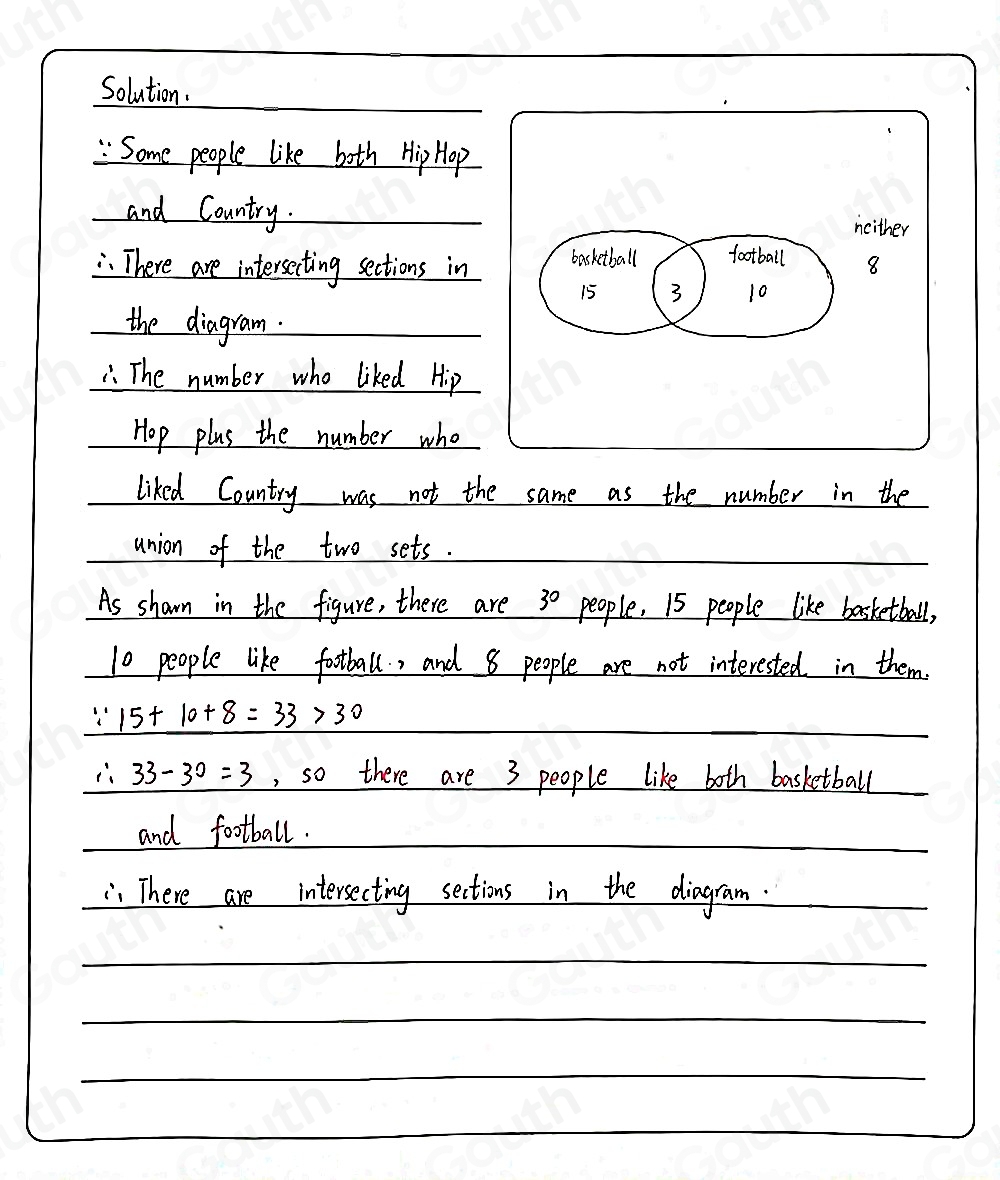 Solution.
∵ Some people like both Hip Hop
and Country.
∴ There are intersecting sections in
the diagram.
∴ The number who liked Hip
Hop plus the number who
liked Country was not the same as the number in the
union of the two sets.
basketball football neither
15 3 10 8
As shown in the figure, there are 30 people, 15 people like basketball,
10 people like football, and 8 people are not interested in them.
∵ 15+ 10+8 = 33 > 30
∴ 33-30 = 3, so there are 3 people like both basketball
and football.
∴ There are intersecting sections in the diagram.
Gauth